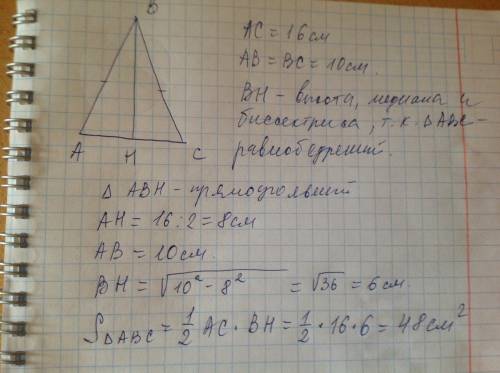 B
A
H
C
AC = 16 см
AB = BC = 10 см.
BH - высота, медиана и
биссектриса, т.к. ΔABC -
равнобедренный.
Δ ABH - прямоугольный
AH = 16 : 2 = 8 см
AB = 10 см.
BH = √10² - 8² = √36 = 6 см.
S ΔABC = 1/2 AC · BH = 1/2 · 16 · 6 = 48 см²